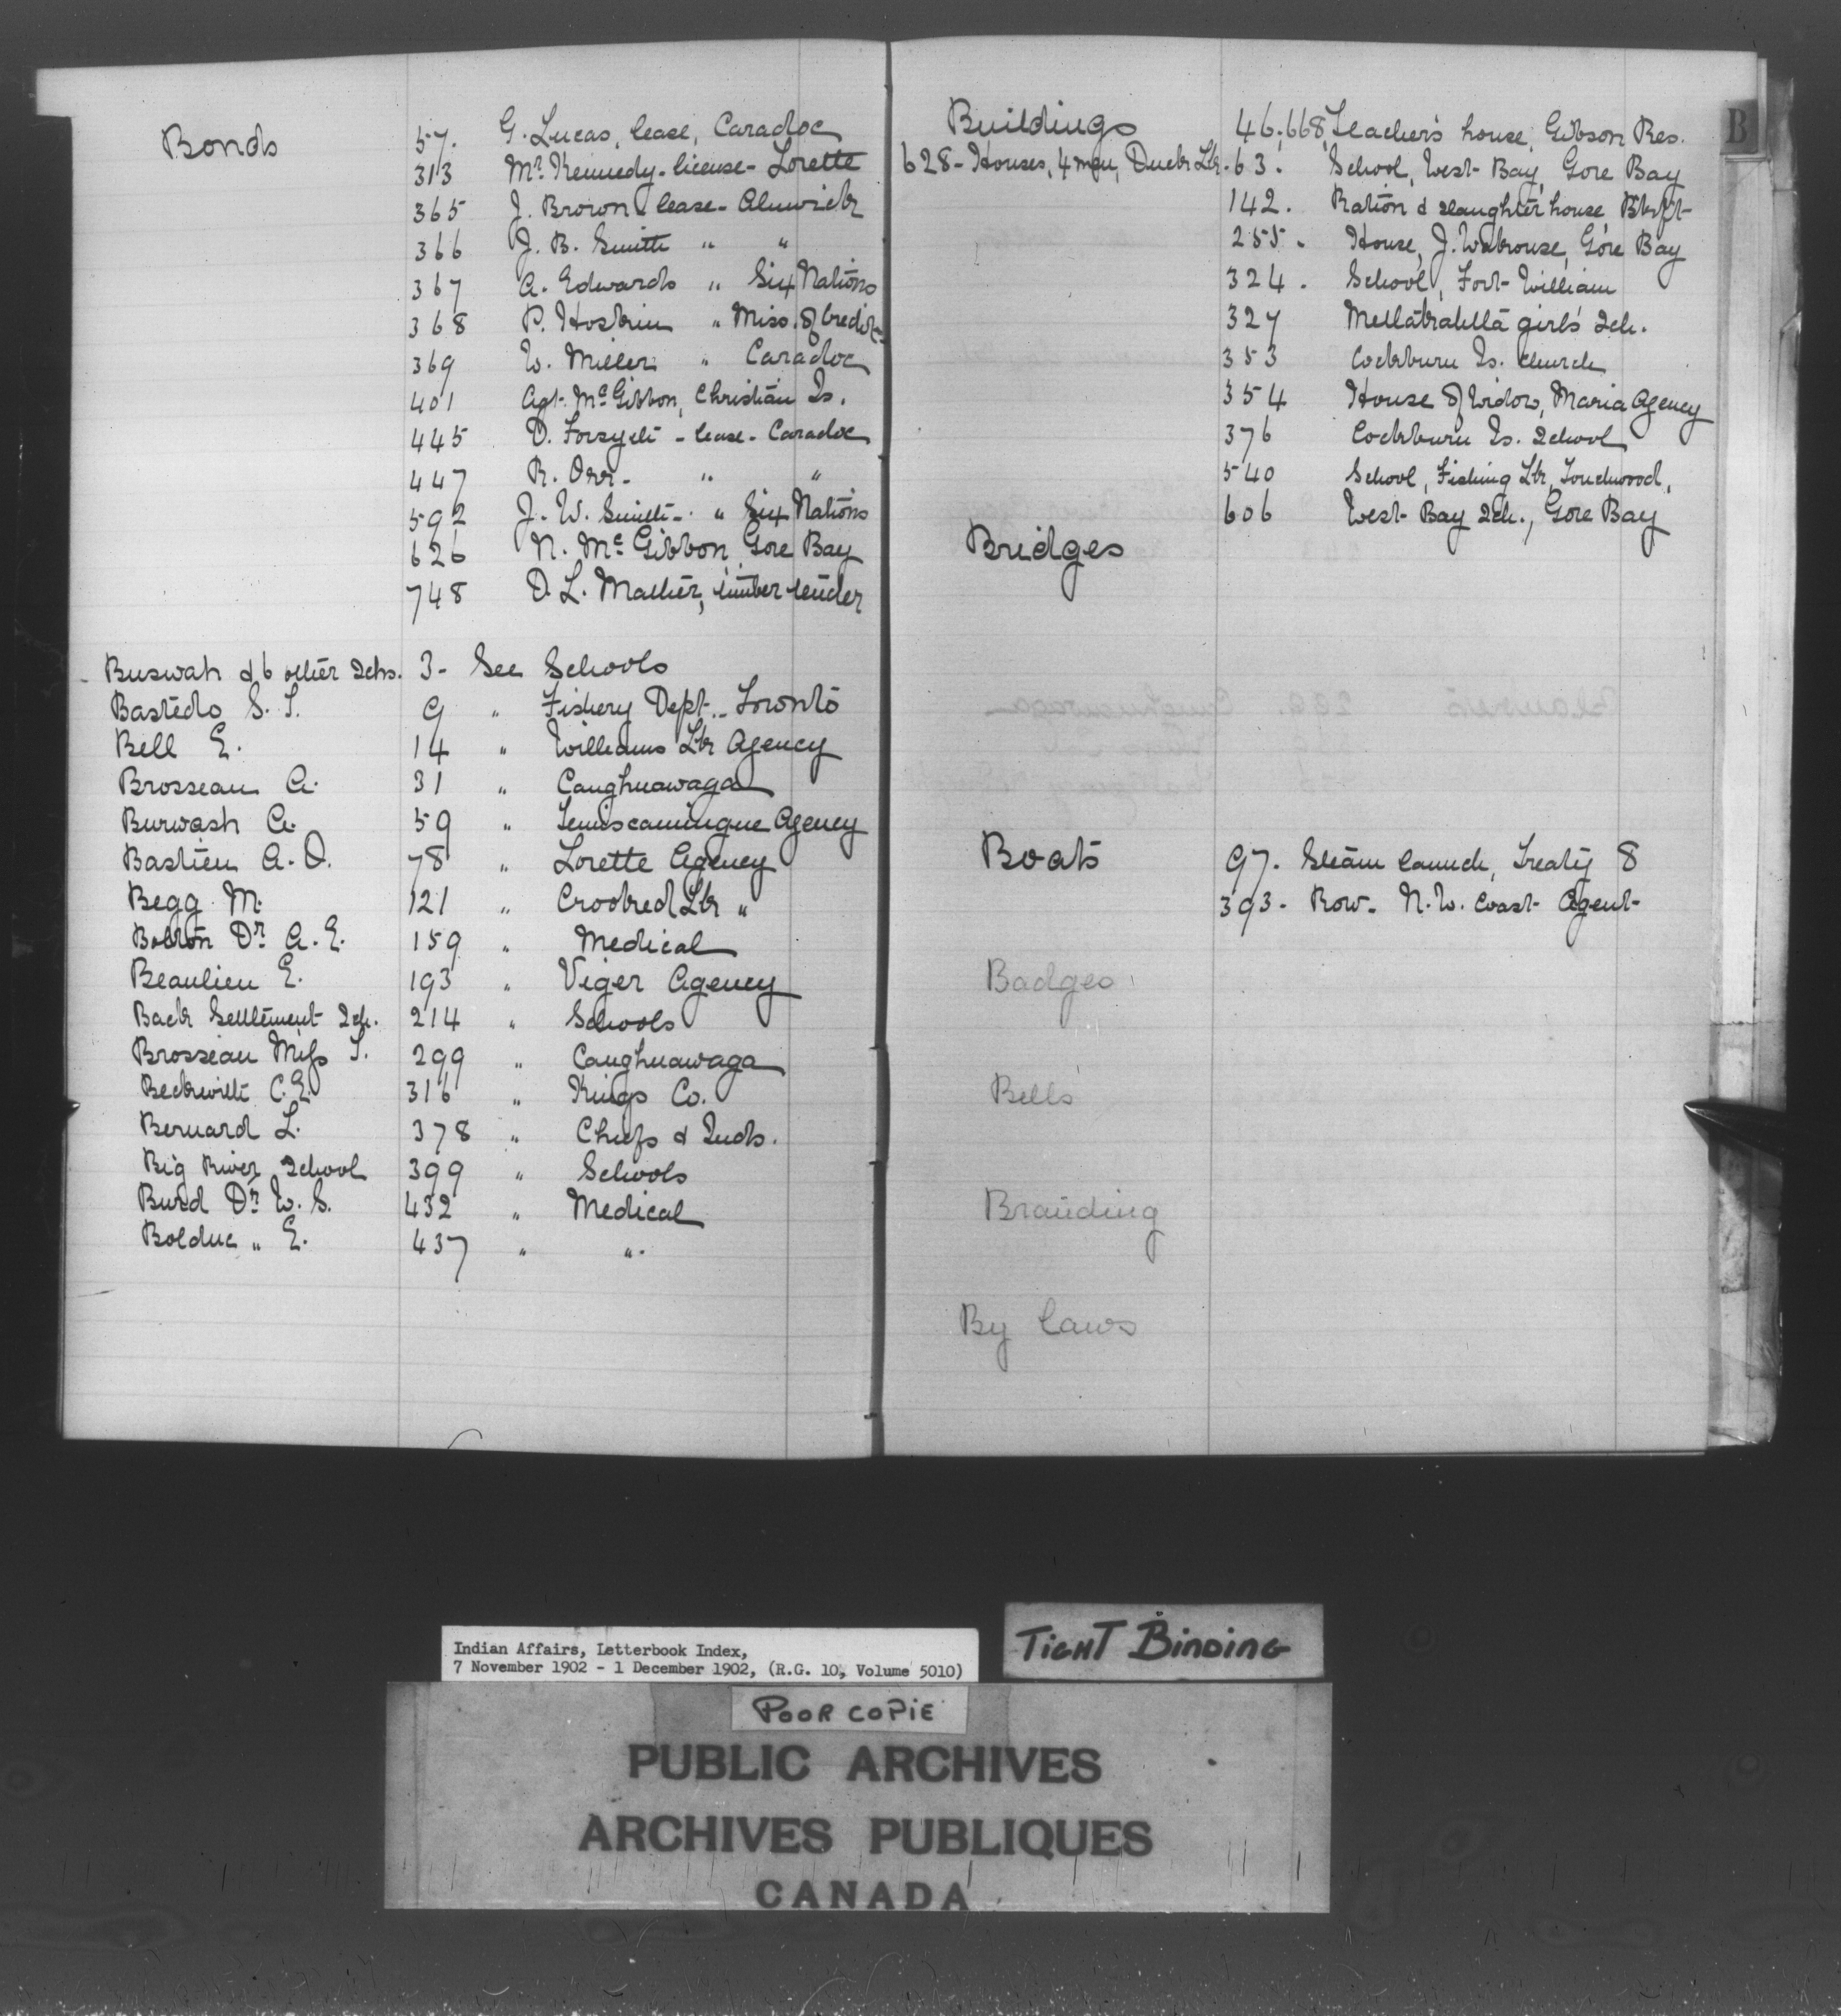 Bonds 57. G. Lucas, lease, Caradoc
313 Mr. Kennedy - license - Lorette
365 J. Brown - lease - Alnwick
366 J. B. Smith " "
367 A. Edwards " Six Nations
368 P. Hoskin " Miss. of Credit
369 W. Miller " Caradoc
401 Agt. McGibbon, Christian Is.
445 D. Forsyth - lease - Caradoc
447 R. Orr - " "
592 J. W. Smith - " Six Nations
626 N. McGibbon, Gore Bay
748 D. L. Mather, timber tender
Buswah & 6 other Schs. 3 - See Schools
Bastedo S. T. 9 " Fishery Dept. - Toronto
Bell E. 14 " Williams Lk Agency
Brosseau A. 31 " Caughnawaga
Burwash A. 59 " Temiscamingue Agency
Bastien A. O. 78 " Lorette Agency
Begg M. 121 " Crooked Lk "
Bolton Dr. A. E. 159 " Medical
Beaulieu E. 193 " Viger Agency
Back Settlement Sch. 214 " Schools
Brosseau Miss T. 299 " Caughnawaga
Beckwith C. E. 316 " Kings Co.
Bernard L. 378 " Chiefs & Inds.
Big River School 399 " Schools
Burd Dr. W. S. 432 " Medical
Bolduc " E. 437 " "
B
Buildings 46,668, Teacher's house, Gibson Res.
628 - Houses, 4 men, Duck Lk. - 63. School, West Bay, Gore Bay
142. Ration & slaughter house
255. House, J. , Gore Bay
324. School, Fort William
327 Metlakahtla girls' Sch.
353 Cockburn Is. Church
354 House of Widow, Maria Agency
376 Cockburn Is. School
540 School, Fishing Lk, Touchwood,
606 West Bay Sch., Gore Bay
Bridges
Boats 97. Steam launch, Treaty 8
393 - Row - N. W. Coast Agent
Badges
Bells
Branding
By laws
Indian Affairs, Letterbook Index,
7 November 1902 - 1 December 1902, (R.G. 10, Volume 5010)
TIGHT BINDING
POOR COPIE
PUBLIC ARCHIVES
ARCHIVES PUBLIQUES
CANADA